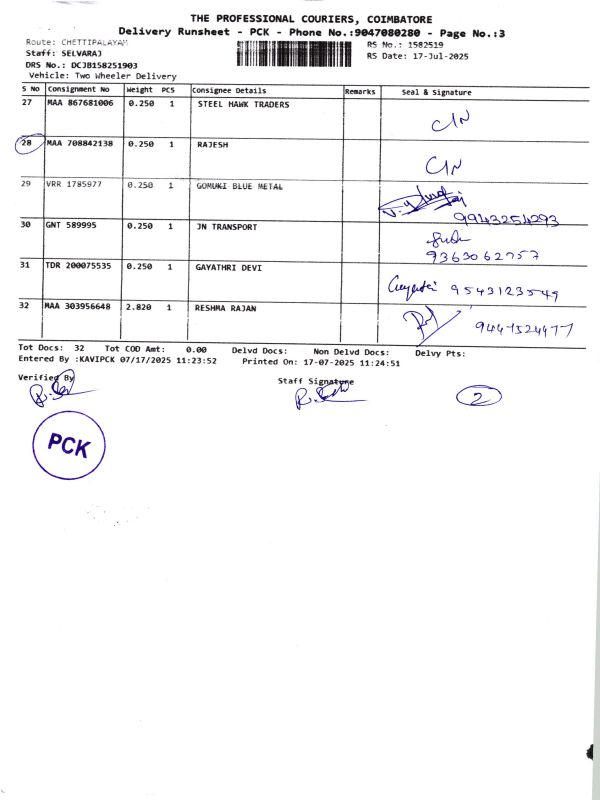 THE PROFESSIONAL COURIERS, COIMBATORE
Delivery Runsheet - PCK - Phone No.:9047080280 - Page No.:3
Route: CHETTIPALAYAM
RS No.: 1582519
Staff: SELVARAJ
RS Date: 17-Jul-2025
DRS No.: DCJB158251903
Vehicle: Two Wheeler Delivery
S No Consignment No Weight PCS Consignee Details Remarks Seal & Signature
27 MAA 867681006 0.250 1 STEEL HAWK TRADERS
C/N
28 MAA 708842138 0.250 1 RAJESH
C/N
29 VRR 1785977 0.250 1 GOMUKI BLUE METAL
9943254293
30 GNT 589995 0.250 1 JN TRANSPORT
9363062757
31 TDR 200075535 0.250 1 GAYATHRI DEVI
Gayatri 9543123549
32 MAA 303956648 2.820 1 RESHMA RAJAN
9447524477
Tot Docs: 32 Tot COD Amt: 0.00 Delvd Docs: Non Delvd Docs: Delvy Pts:
Entered By :KAVIPCK 07/17/2025 11:23:52 Printed On: 17-07-2025 11:24:51
Verified By
Staff Signature
2
PCK